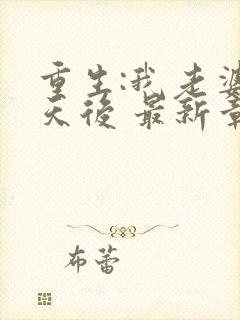 重生:我老婆
天後 最新章
布蕾